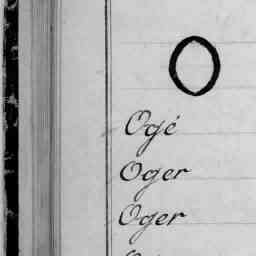 O
Ogé
Oger
Oger